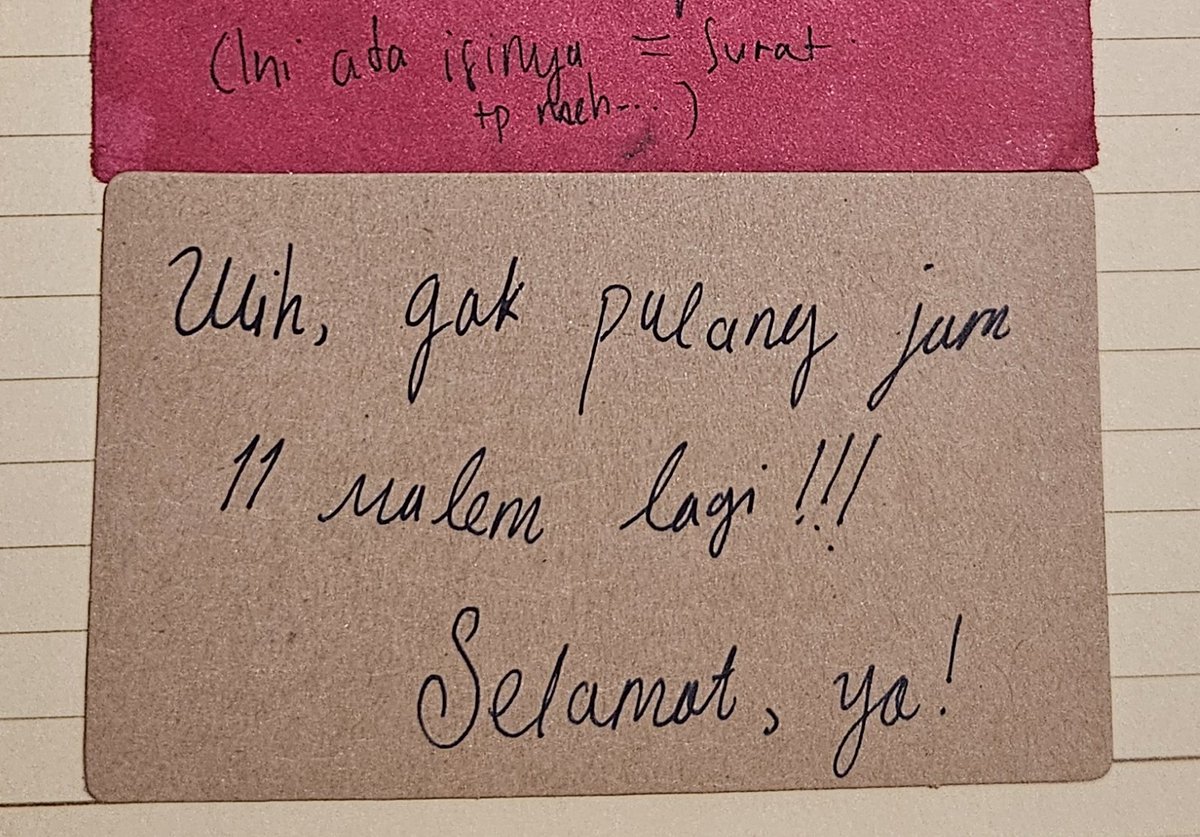 (Ini ada isinya = Surat
tp meh...)
Wih, gak pulang jam
11 malem lagi!!!
Selamat, ya!